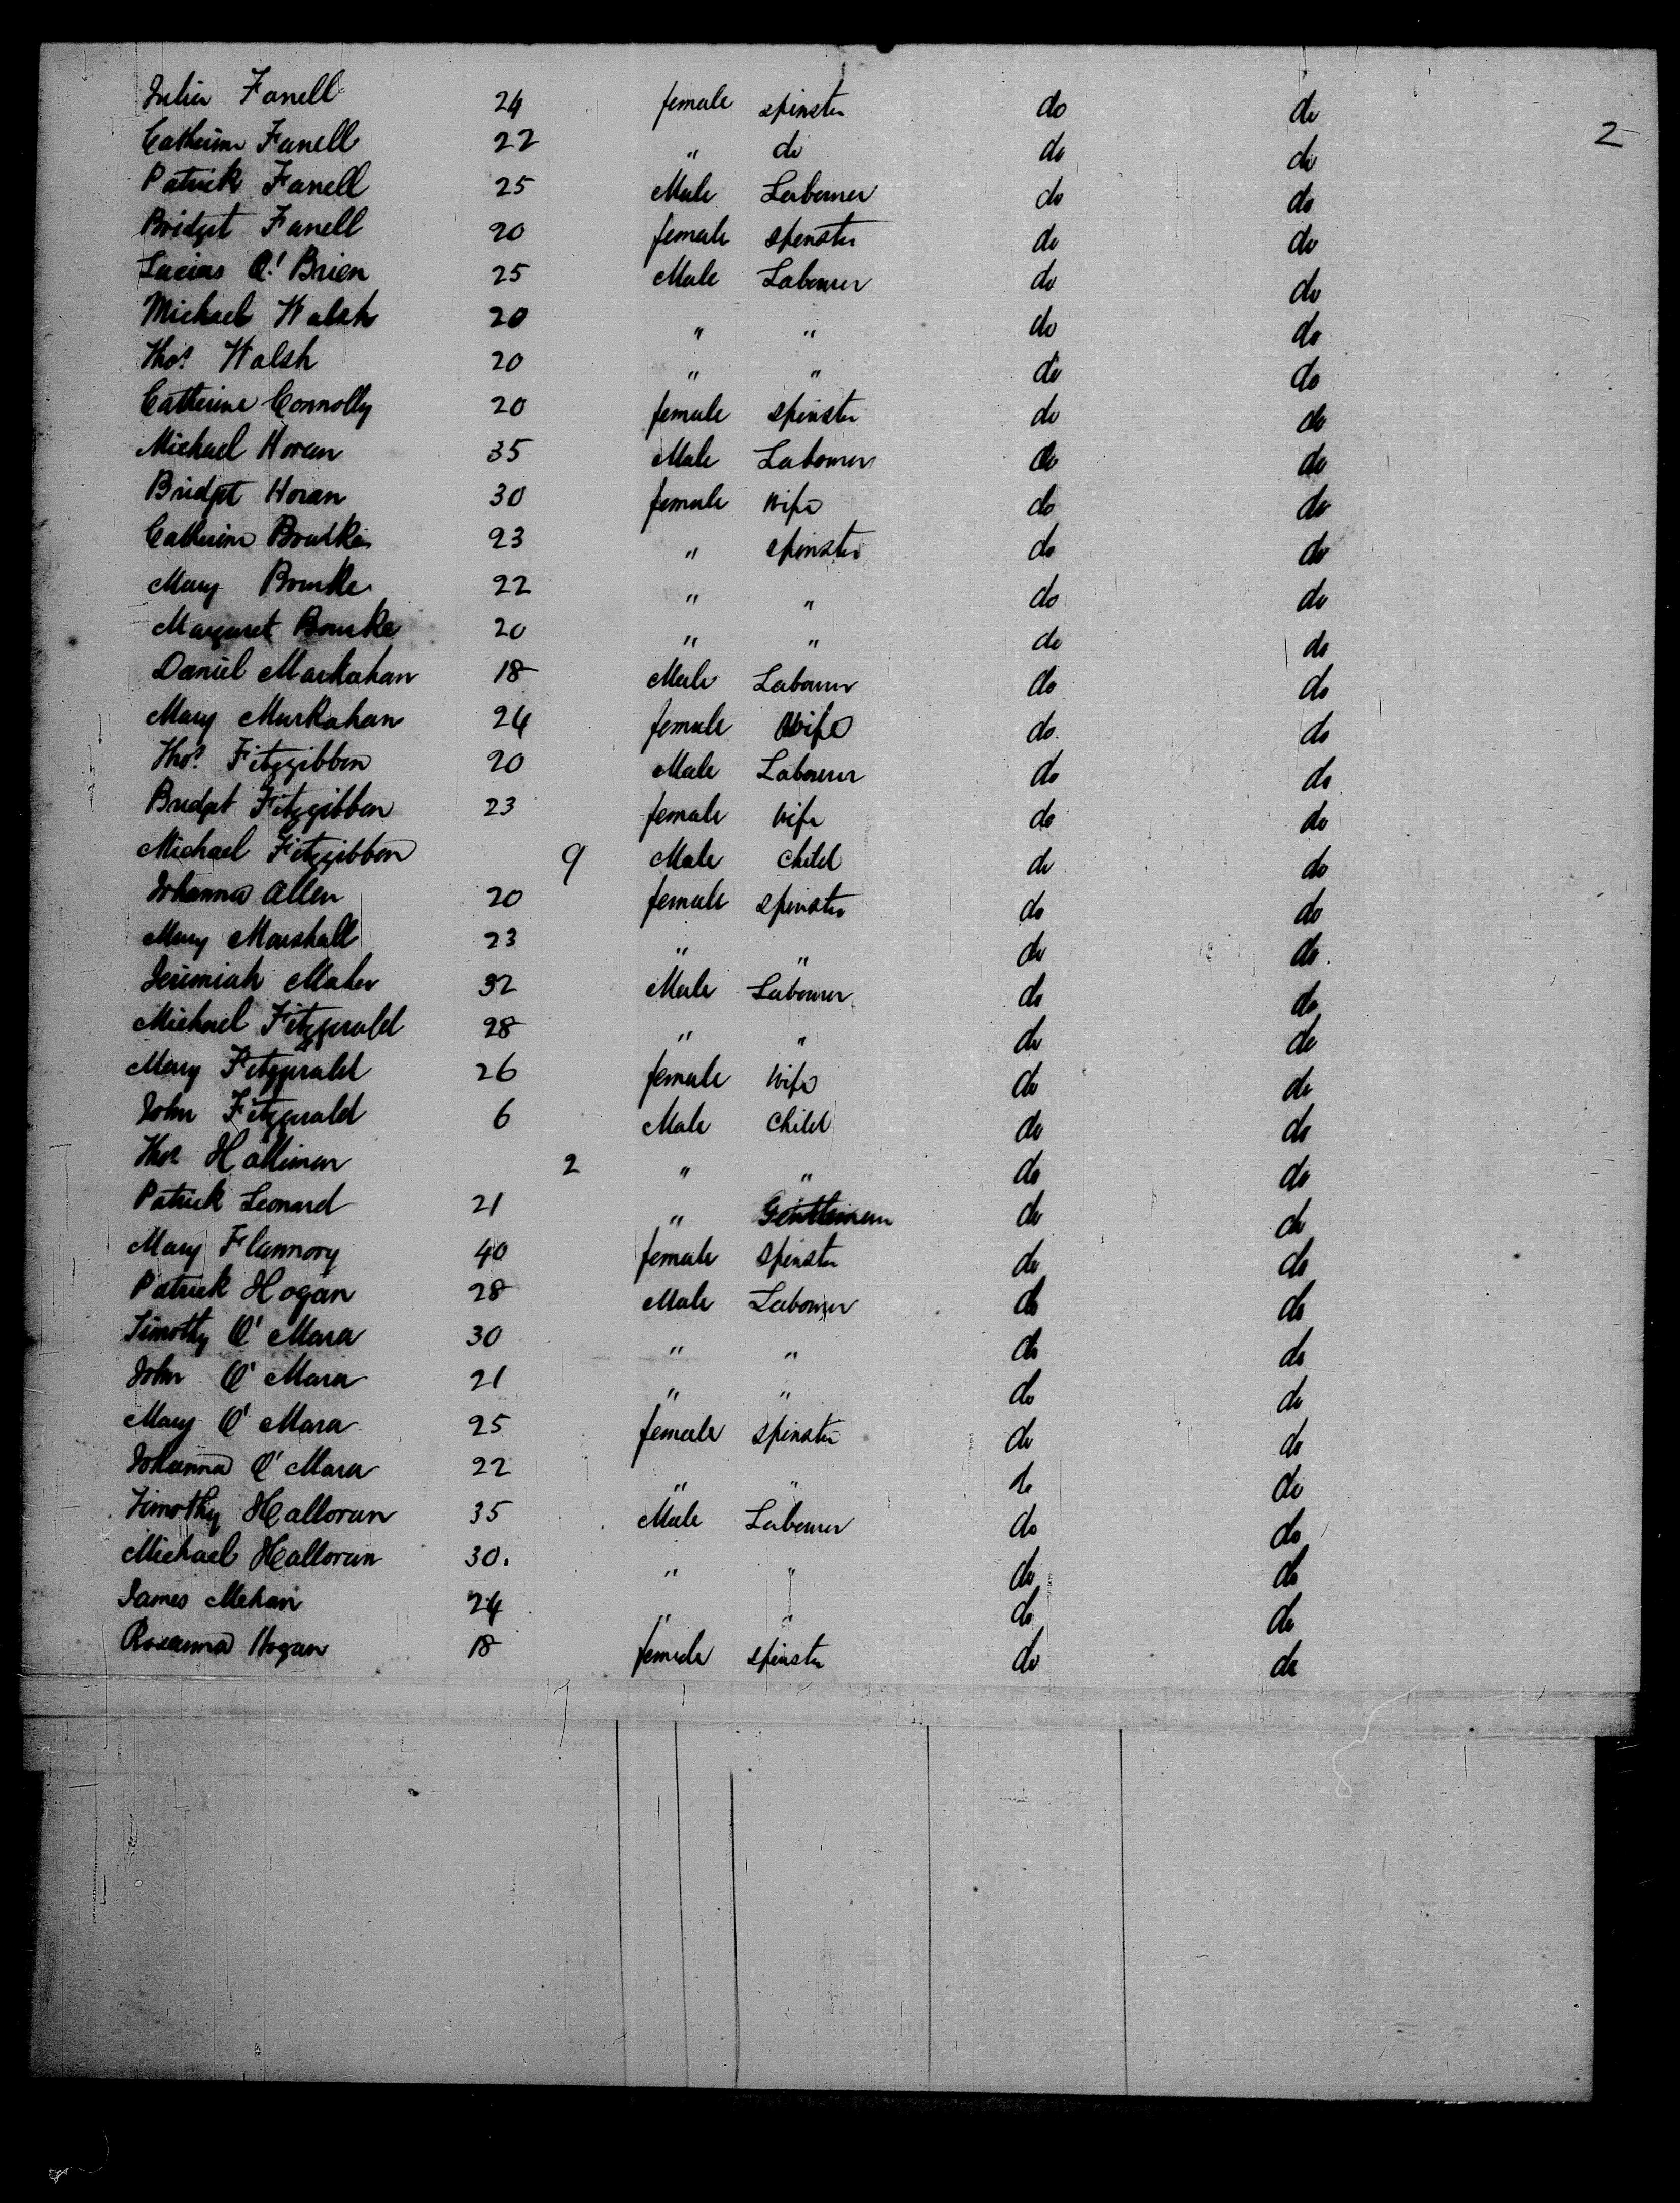 2
Julia Fanell 24 female spinster do do
Catherine Fanell 22 " do do do
Patrick Fanell 25 Male Labourer do do
Bridget Fanell 20 female spinster do do
Lucius O'Brien 25 Male Labourer do do
Michael Walsh 20 " " do do
Thos Walsh 20 " " do do
Catherine Connolly 20 female spinster do do
Michael Horan 35 Male Labourer do do
Bridget Horan 30 female Wife do do
Catherine Bourke 23 " spinster do do
Mary Bourke 22 " " do do
Margaret Bourke 20 " " do do
Daniel Markahan 18 Male Labourer do do
Mary Markahan 24 female Wife do do
Thos Fitzgibbon 20 Male Labourer do do
Bridget Fitzgibbon 23 female Wife do do
Michael Fitzgibbon 9 Male Child do do
Johanna Allen 20 female spinster do do
Mary Marshall 23 " " do do
Jerimiah Maher 32 Male Labourer do do
Michael Fitzgerald 28 " " do do
Mary Fitzgerald 26 female Wife do do
John Fitzgerald 6 Male Child do do
Thos Hallinan 2 " " do do
Patrick Leonard 21 " Gentleman do do
Mary Flannory 40 female spinster do do
Patrick Hogan 28 Male Labourer do do
Timothy O'Mara 30 " " do do
John O'Mara 21 " " do do
Mary O'Mara 25 female spinster do do
Johanna O'Mara 22 " " do do
Timothy Halloran 35 Male Labourer do do
Michael Halloran 30. " " do do
James Mehan 24 " " do do
Rosanna Hogan 18 female spinster do do